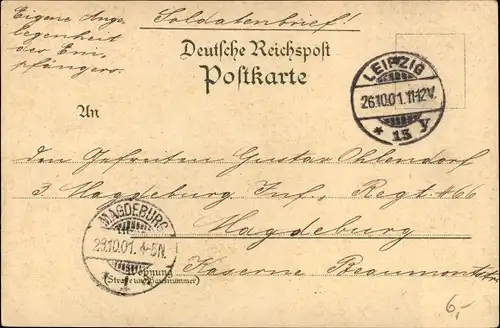 Eigene Ange
legenheit
des Em
pfängers.
Soldatenbrief!
Deutsche Reichspost
Postkarte
LEIPZIG
26.10.01.11-12V.
* 13 y
An
den Gefreiten Gustav Ohlendorf
3 Magdeburg Inf. Regt. #66
Magdeburg
Kaserne Beaumontstr
MAGDEBURG
29.10.01. 4-5N.
Wohnung
(Straße und Hausnummer)
6,-